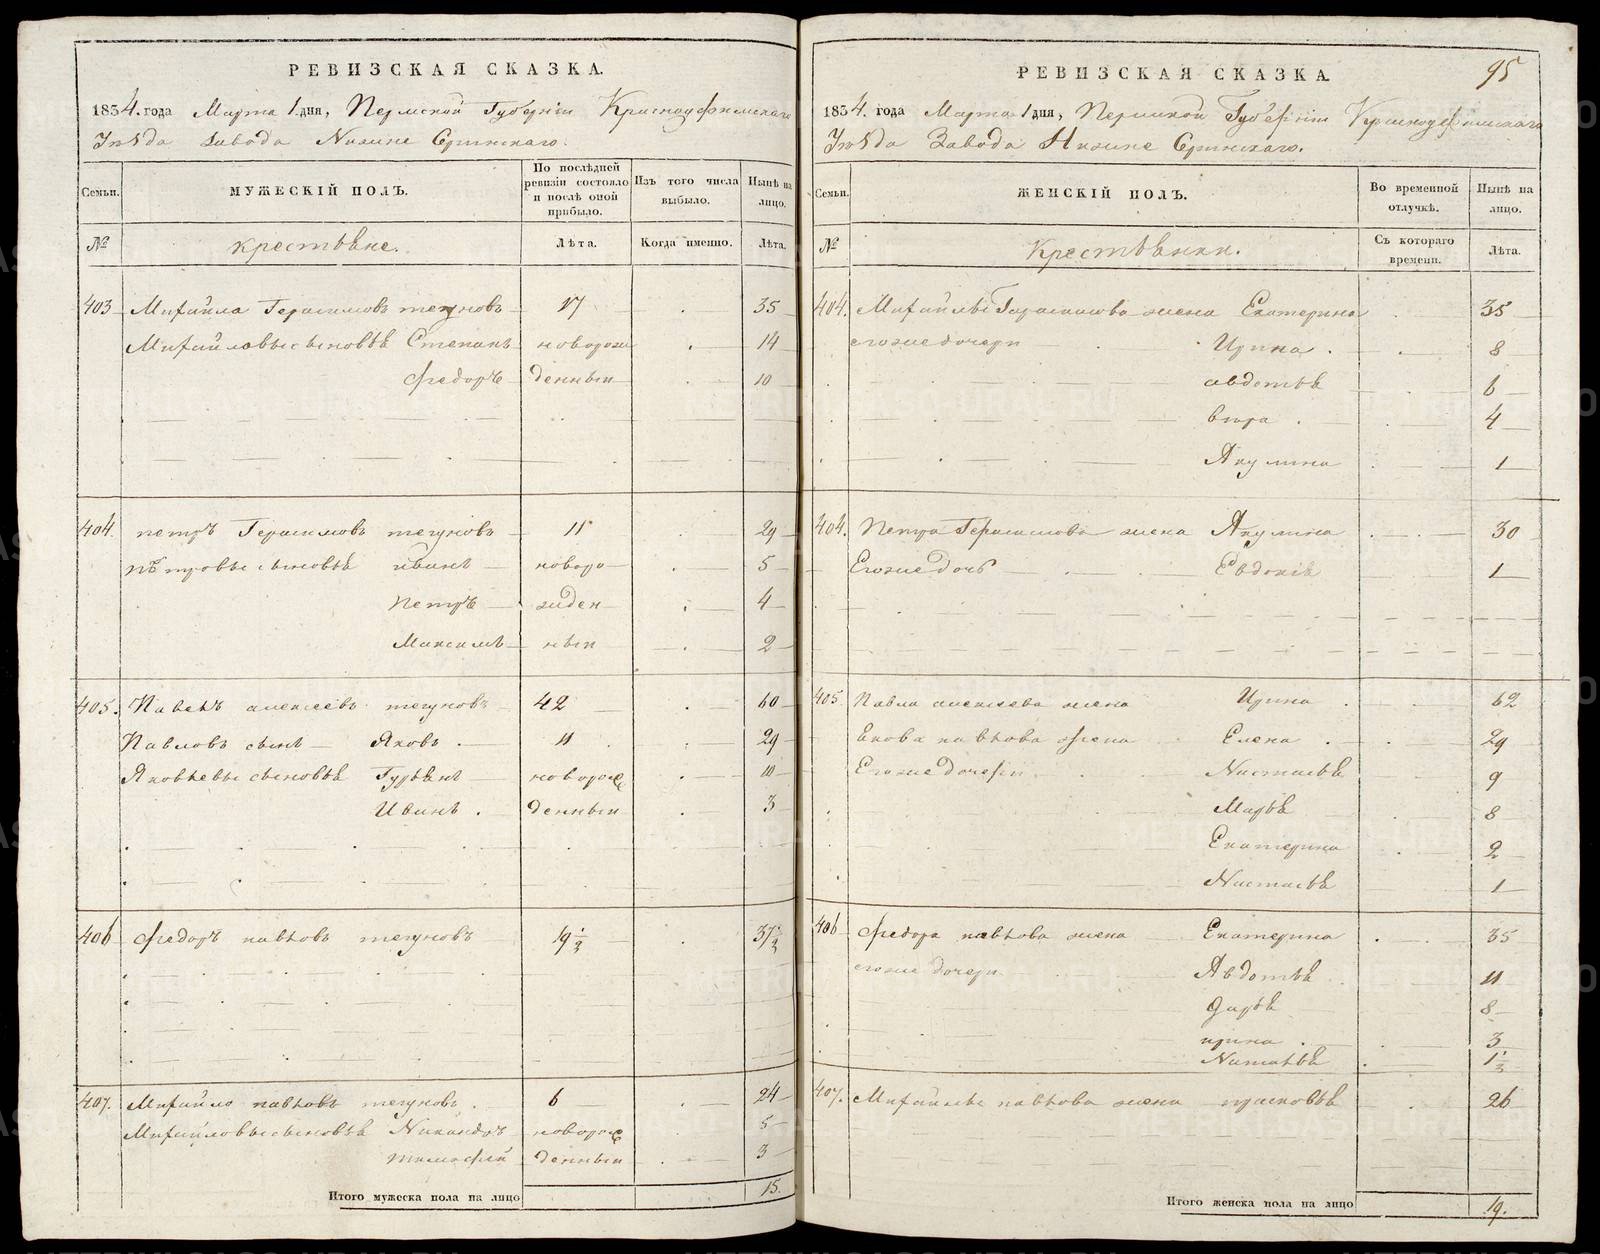 РЕВИЗСКАЯ СКАЗКА.
1834. года Марта 1 дня, Пермской Губерніи Красноуфимскаго
Уѣзда Завода Нижне Сргинскаго.
Семьи. МУЖЕСКІЙ ПОЛЪ. По послѣдней ревизіи состояло и послѣ оной прибыло. Изъ того числа выбыло. Нынѣ на лицо.
№ крестьяне. Лѣта. Когда именно. Лѣта.
403 Михайла Герасимовъ тегуновъ 17 35
Михайловы сыновья Степанъ новорож 14
Федоръ денныи 10
404. петръ Герасимовъ тегуновъ 11 29
Петровы сыновья иванъ новоро 5
Петръ жден 4
Максимъ ныи 2
405. Павелъ алексеевъ тегуновъ 42 60
Павловъ сынъ Яковъ. 11 29
Яковлевы сыновья Гурьянъ новорож 10
Иванъ. денныи 3
406 Федоръ павловъ тегуновъ 19 1/2 37 1/2
407. Михайло павловъ тегуновъ. 6 24
Михайловы сыновья Никандръ новорож 5
тимофей денныи 3
Итого мужеска пола на лицо 15.
95
РЕВИЗСКАЯ СКАЗКА.
1834. года Марта 1 дня, Пермской Губерніи Красноуфимскаго
Уѣзда Завода Нижне Сргинскаго.
Семьи. ЖЕНСКІЙ ПОЛЪ. Во временной отлучкѣ. Нынѣ на лицо.
№ Крестьянки. Съ котораго времени. Лѣта.
404. Михайлы Герасимова жена Екатерина 35
егоже дочери Ирина. 8
авдотья 6
вера. 4
Акулина 1
404. Петра Герасимова жена Акулина 30
Егоже дочь Евдокія 1
405 Павла алексеева жена Ирина 62
Якова павлова жена Елена. 29
Егоже дочери Настасья 9
Марья 8
Екатерина 2
Настасья 1
406 Федора павлова жена Екатерина 35
егоже дочери Авдотья 11
Дарья 8
ирина. 3
Наталья 1 1/2
407. Михайлы павлова жена прасковья 26
Итого женска пола на лицо 19.